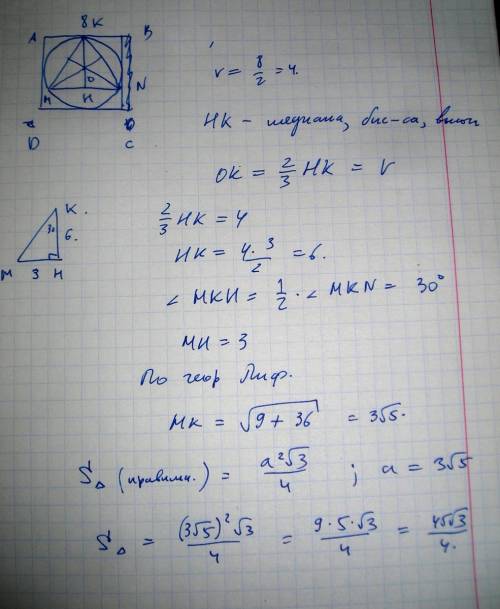 8 K
A B
O N
M H
D C
r = 8/2 = 4.
HK – медиана, бис-са, высот
OK = 2/3 HK = r
2/3 HK = 4
HK = 4·3/2 = 6.
∠ MKH = 1/2 · ∠ MKN = 30°
K.
30 6.
M 3 H
MH = 3
По теор Пиф.
MK = √(9 + 36) = 3√5.
S△ (правильн.) = a²√3/4 ; a = 3√5
S△ = (3√5)²√3/4 = 9·5·√3/4 = 45√3/4.